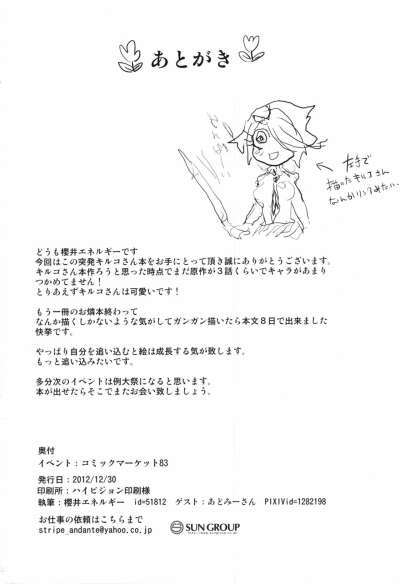 あとがき
なんか
左手で
描いたキルコさん
なんかリンクみたい。
どうも櫻井エネルギーです
今回はこの突発キルコさん本をお手にとって頂き誠にありがとうございます。
キルコさん本作ろうと思った時点でまだ原作が３話くらいでキャラがあまり
つかめてません！
とりあえずキルコさんは可愛いです！
もう一冊のお燐本終わって
なんか描くしかないような気がしてガンガン描いたら本文８日で出来ました
快挙です。
やっぱり自分を追い込むと絵は成長する気が致します。
もっと追い込みたいです。
多分次のイベントは例大祭になると思います。
本が出せたらそこでまたお会い致しましょう。
奥付
イベント：コミックマーケット83
発行日：2012/12/30
印刷所：ハイビジョン印刷様
執筆：櫻井エネルギー　id=51812　ゲスト：あとみーさん　PIXIVid=1282198
お仕事の依頼はこちらまで
stripe_andante@yahoo.co.jp
SUN GROUP